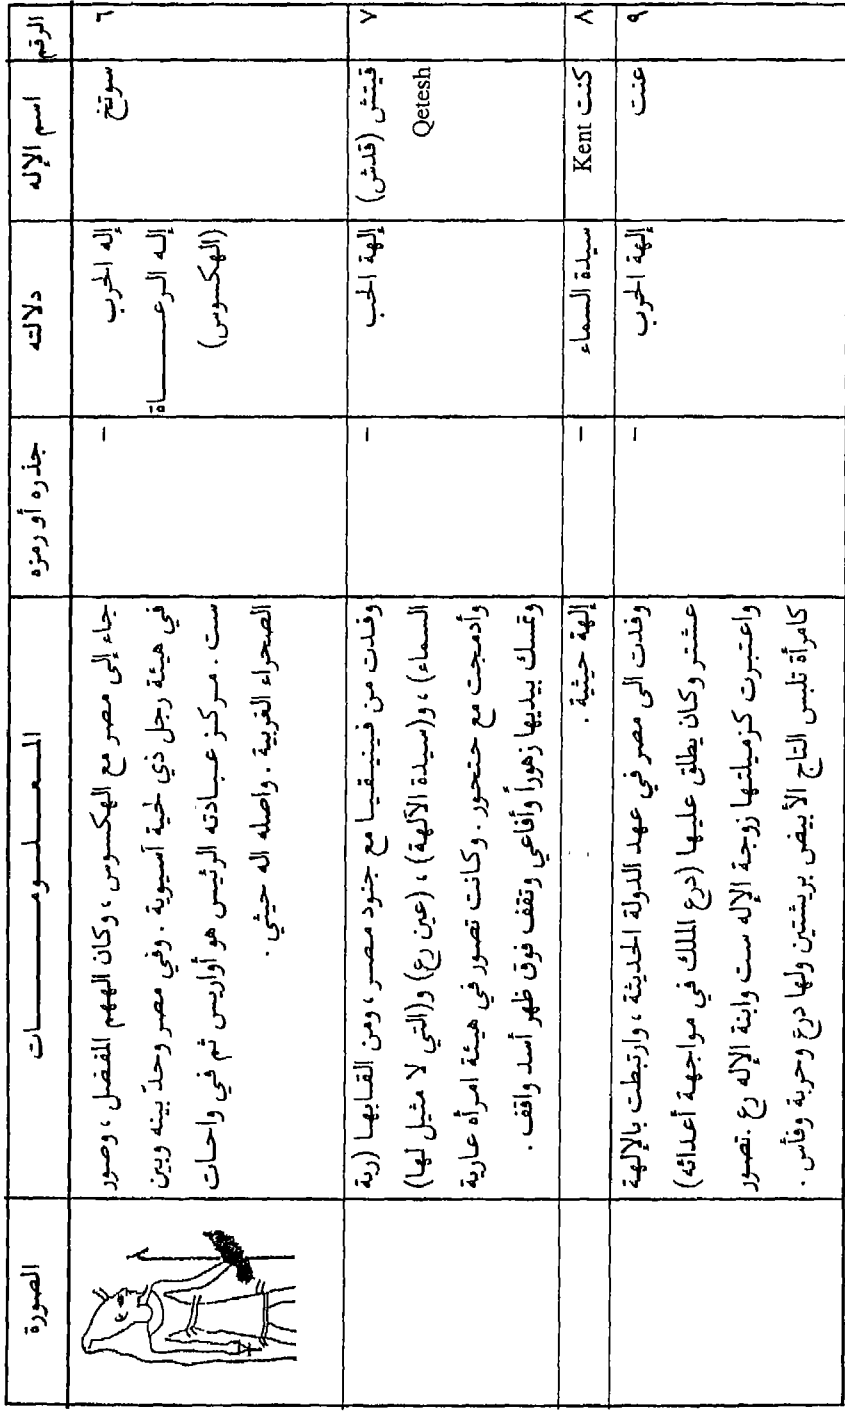 الرقم
اسم الإله
دلالته
جذره أو رمزه
المعلومات
الصورة
٦
سوتخ
إله الحرب
إله الرعاة
(الهكسوس)
-
جاء إلى مصر مع الهكسوس ، وكان الههم المفضل ، وصور
في هيئة رجل ذي لحية آسيوية . وفي مصر وحدّ بينه وبين
ست . مركز عبادته الرئيس هو أواريس ثم في واحات
الصحراء الغربية . واصله اله حيثي .
٧
قيتش (قدش)
Qetesh
إلهة الحب
-
وفدت من فينيقيا مع جنود مصر ، ومن القابها (ربة
السماء) ، و(سيدة الآلهة) ، (عين رع) و(التي لا مثيل لها)
وأدمجت مع حتحور . وكانت تصور في هيئة امرأة عارية
وتمسك بيديها زهوراً وأفاعي وتقف فوق ظهر أسد واقف .
٨
كنت Kent
سيدة السماء
-
إلهة حيثية .
٩
عنت
إلهة الحرب
-
وفدت الى مصر في عهد الدولة الحديثة ، وارتبطت بالإلهة
عشتر وكان يطلق عليها (درع الملك في مواجهة أعدائه)
واعتبرت كزميلتها زوجة الإله ست وابنة الإله رع . تصور
كامرأة تلبس التاج الأبيض بريشتين ولها درع وحربة وفأس .